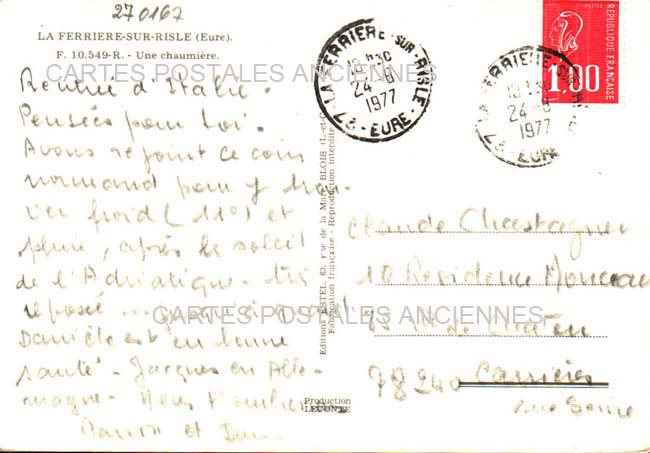 270167
LA FERRIERE-SUR-RISLE (Eure).
F. 10.549-R. - Une chaumière.
CARTES POSTALES ANCIENNES
Rentrée d'Italie.
Pensées pour toi.
Avons rejoint ce coin
normand pour y trou-
ver froid (11°) et
pluie, après le soleil
de l'Adriatique. très
reposé ...
Danièle est en bonne
santé - Jacques en Alle-
magne -
et
Editions ASTEL, 63, rue de la Mare, BLOIS (L.-et-C.)
Fabrication française - Reproduction interdite
Production
LECONTE
LA FERRIERE-SUR-RISLE
24 -8
1977
EURE
LA FERRIERE-SUR-RISLE
24 -8
1977
EURE
POSTES
1,00
REPUBLIQUE FRANÇAISE
Claude Chastagner
10 Résidence Monceau
78240 Carrières
sur Seine
CARTES POSTALES ANCIENNES